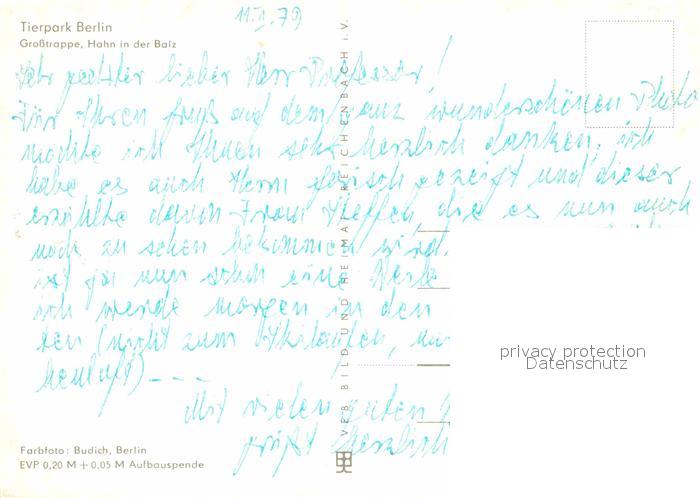 11.II.79
Tierpark Berlin
Großtrappe, Hahn in der Balz
Sehr geehrter lieber Herr Professor!
Für Ihren Gruß auf dem ganz wunderschönen Photo
möchte ich Ihnen sehr herzlich danken, ich
habe es auch Herrn gezeigt und dieser
erzählte davon Frau Steffen, die es nun auch
noch zu sehen bekommen wird.
ist ja nun schon eine Weile
ich werde morgen in den
ten (nicht zum Skilaufen, nur
henluft) ---
Mit vielen guten
grüßt herzlich
VEB BILD UND HEIMAT REICHENBACH i. V.
privacy protection
Datenschutz
Farbfoto: Budich, Berlin
EVP 0,20 M + 0,05 M Aufbauspende